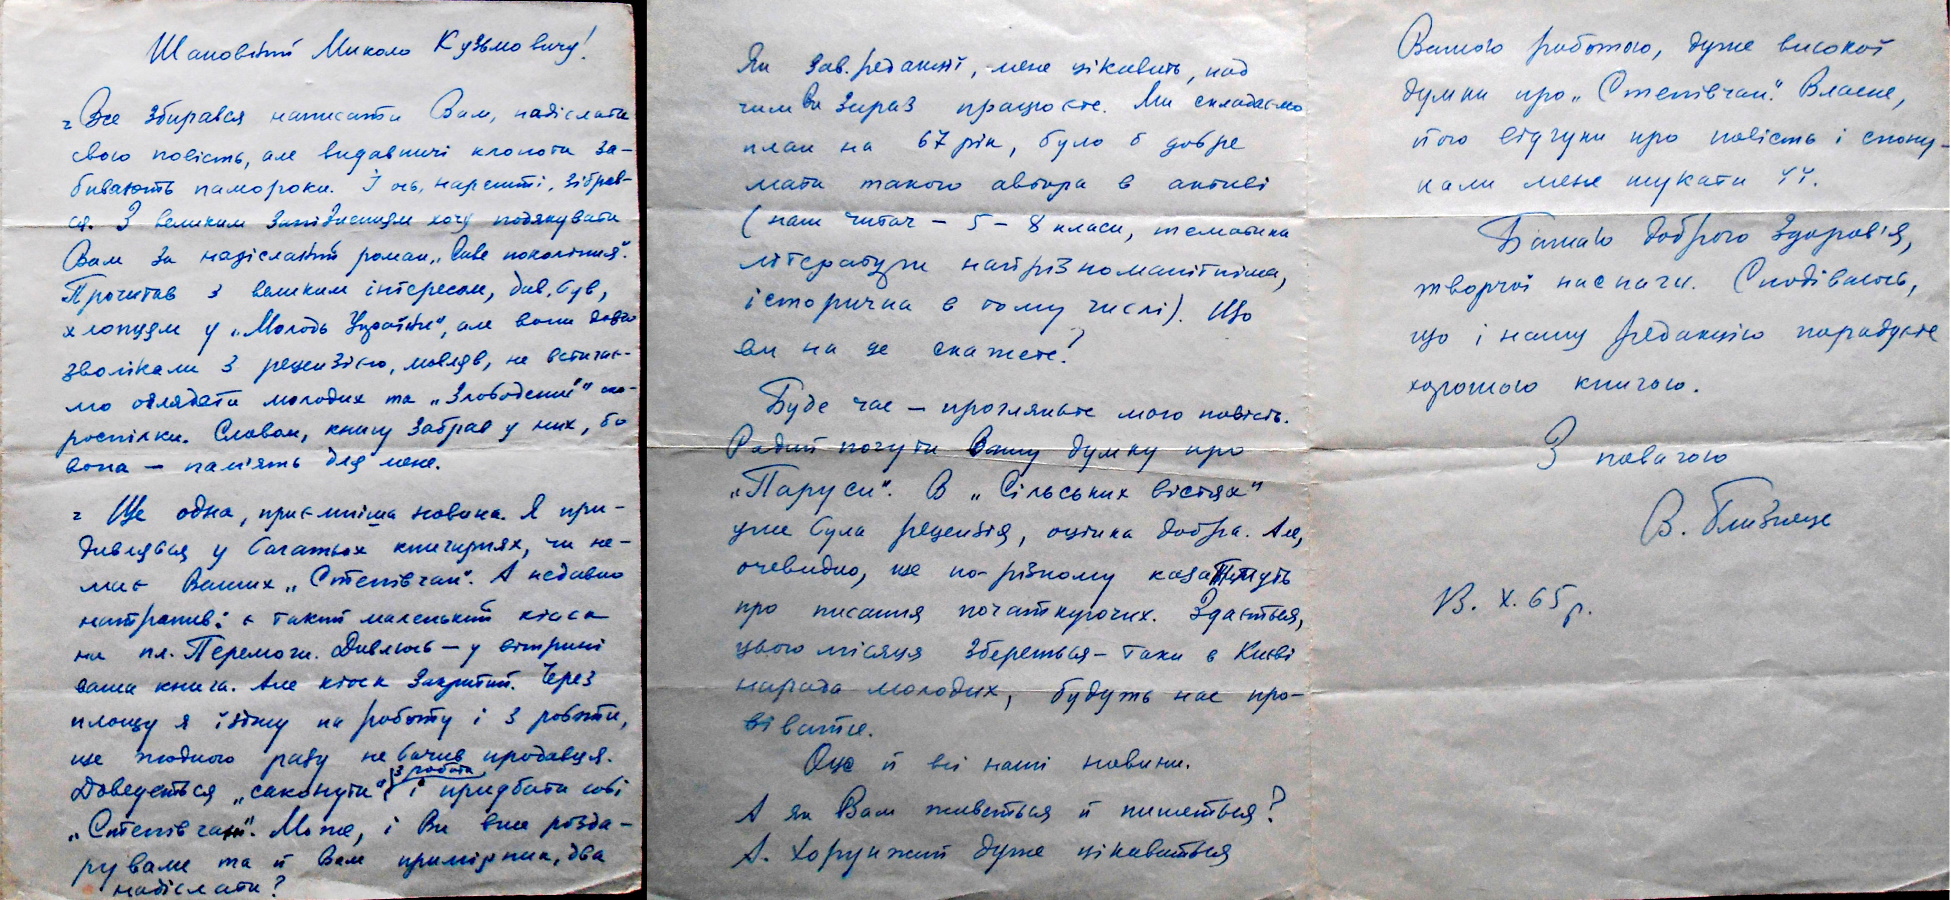 Шановний Миколо Кузьмовичу!
Все збирався написати Вам, надіслати
свою повість, але видавничі клопоти за-
бивають памороки. І ось, нарешті, зібрав-
ся. З великим запізненням хочу подякувати
Вам за надісланий роман „Сиве покоління".
Прочитав з великим інтересом, дав, був,
хлопцям у „Молодь України", але вони довго
зволікали з рецензією, мовляв, не встигає-
мо оглядати молодих та „злободенні" ско-
роспілки. Словом, книгу забрав у них, бо
вона — пам'ять для мене.
Ще одна, приємніша новина. Я при-
дивлявся у багатьох книгарнях, чи не-
має Ваших „Степівчан". А недавно
натрапив: є такий маленький кіоск
на пл. Перемоги. Дивлюсь — у вітрині
ваша книга. Але кіоск закритий. Через
площу я їзджу на роботу і з роботи,
ще жодного разу не бачив продавця.
Доведеться „сачконути" з роботи і придбати собі
„Степівчан". Може, і Ви вже розда-
рували та й Вам примірник, два
надіслати?
Як зав. редакції, мене цікавить, над
чим Ви зараз працюєте. Ми складаємо
план на 67 рік, було б добре
мати такого автора в активі
(наш читач — 5 – 8 класи, тематика
літератури найрізноманітніша,
історична в тому числі). Що
ви на це скажете?
Буде час — прогляньте мою повість.
Радий почути Вашу думку про
„Паруси". В „Сільських вістях"
уже була рецензія, оцінка добра. Але,
очевидно, ще по-різному казатимуть
про писання початкуючих. Здається,
цього місяця збереться-таки в Києві
нарада молодих, будуть нас про-
вівати.
Оце й всі наші новини.
А як Вам живеться й пишеться?
А. Хорунжий дуже цікавиться
Вашою роботою, дуже високої
думки про „Степівчан". Власне,
його відгуки про повість і спону-
кали мене шукати її.
Бажаю доброго здоров'я,
творчої наснаги. Сподіваюсь,
що і нашу редакцію порадуєте
хорошою книгою.
З повагою
В. Близнець
13. X. 65 р.